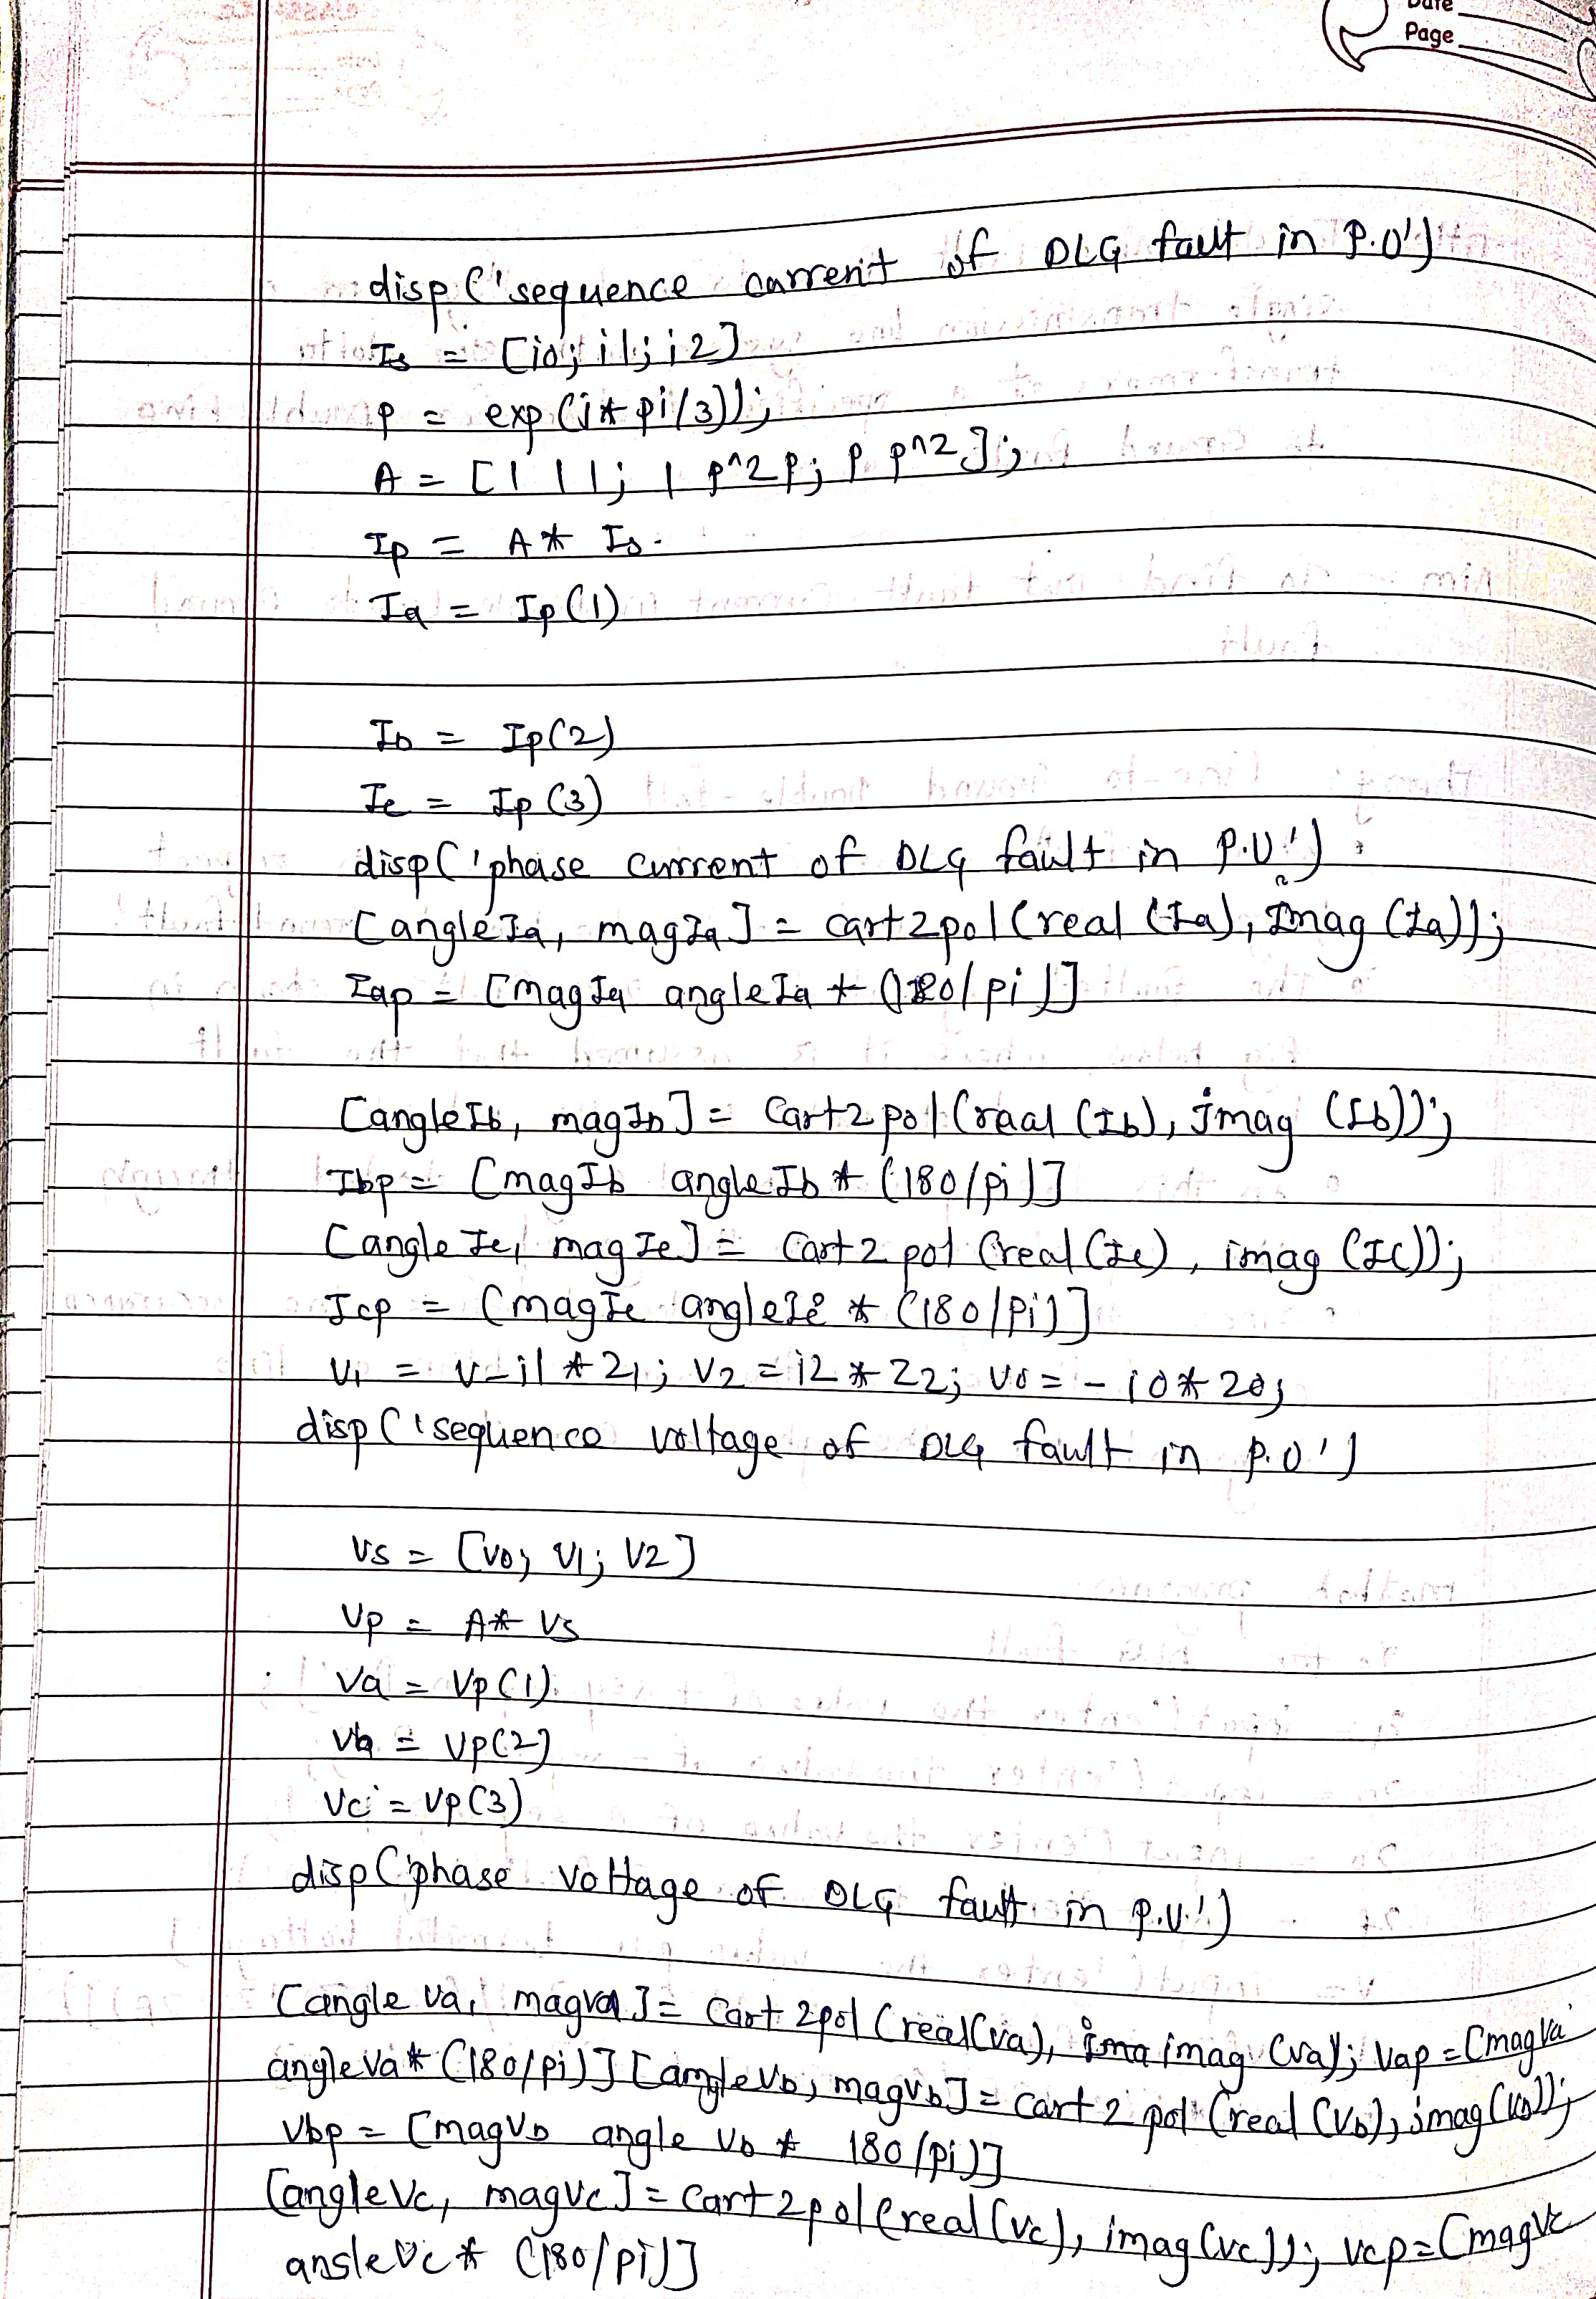 Date
Page
disp ('sequence current of DLG fault in P.U')
Is = [i0; i1; i2]
p = exp(j*pi/3));
A = [1 1 1; 1 p^2 p; p p^2];
Ip = A * Is.
Ia = Ip(1)
Ib = Ip(2)
Ic = Ip(3)
disp('phase current of DLG fault in P.U')
[angleIa, magIa] = cart2pol(real(Ia), imag(Ia));
Iap = [magIa angleIa * (180/pi)]
[angleIb, magIb] = Cart2pol(raal(Ib), imag(Ib));
Ibp = [magIb angleIb * (180/pi)]
[angleIc, magIc] = Cart2pol(real(Ic), imag(Ic));
Icp = [magIc angleIc * (180/pi)]
V1 = V-i1 * Z1; V2 = i2 * Z2; V0 = -i0 * Z0;
disp('sequence voltage of DLG fault in P.U')
Vs = [V0; V1; V2]
Vp = A * Vs
Va = Vp(1)
Vb = Vp(2)
Vc = Vp(3)
disp('phase voltage of DLG fault in P.U.')
[angle Va, magVa] = Cart2pol(real(Va), imag(Va); Vap = [magVa
angleVa * (180/pi)] [angleVb, magVb] = Cart2pol(real(Vb), imag(Vb));
Vbp = [magVb angle Vb * 180/pi)]
[angleVc, magVc] = Cart2pol(real(Vc), imag(Vc)); Vcp = [magVc
ansleVc * (180/pi)]